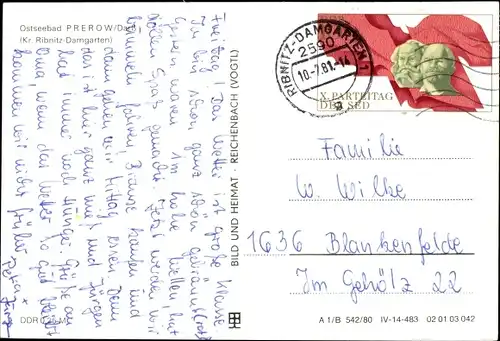 Ostseebad PREROW/Darß
(Kr. Ribnitz-Damgarten)
Freitag! Das Wetter ist große Klasse.
Ich bin schon ganz schön gebräunt
Gestern waren 1m hohe Wellen, hat
tollen Spaß gemacht. Jetzt werden wir
bummeln fahren, Brause kaufen und
dann gehen wir Mittag essen. Denn
das ist hier ganz und Jürgen
hat immer noch Hunger. Grüße an
Oma, wenn das Wetter so gut bleibt
kommen wir nicht früher
Peter +
Jürgen
DDR 0, M
BILD UND HEIMAT · REICHENBACH (VOGTL)
RIBNITZ-DAMGARTEN 1
2590
10.-7.81.-14
a
X. PARTEITAG
DER SED
Familie
W. Wilke
1636 Blankenfelde
Im Gehölz 22
A 1/B 542/80 IV-14-483 02 01 03 042